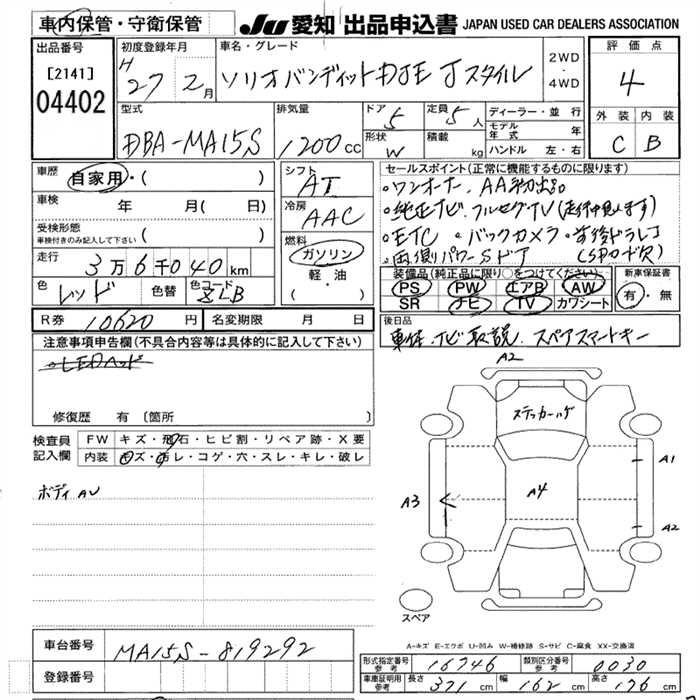 車内保管・守衛保管 JU 愛知 出品申込書 JAPAN USED CAR DEALERS ASSOCIATION
出品番号
[2141]
04402
初度登録年月
H 27 年 2 月
車名・グレード
ソリオバンディット DJE Jスタイル
2WD
・
4WD
評価点
4
外装 内装
C B
型式
DBA-MA15S
排気量
1200 cc
ドア 5
定員 5 人
形状 W
積載 kg
ディーラー・並行
モデル年式 年
ハンドル 左・右
車歴
自家用・( )
車検 年 月( 日)
受検形態
車検付きのみ記入して下さい ( )
走行 3万6千040km
色 レッド 色替 色コード ZLB
シフト AT
冷房 AAC
燃料
ガソリン
軽・油
( )
セールスポイント(正常に機能するものに限ります)
・ワンオーナー AA初出品
・純正ナビ・フルセグTV(走行中見れます)
・ETC ・バックカメラ・前後ドラレコ
・両側パワーSドア
装備品(純正品に限り○をつけてください)
PS PW エアB AW
SR ナビ TV カワシート
新車保証書
有・無
R券 10620 円 名変期限 月 日
後日品
車検・ナビ取説、スペアスマートキー
注意事項申告欄(不具合内容等は具体的に記入して下さい)
・LEDヘッド
修復歴 有〔箇所 〕
検査員記入欄
FW キズ・飛石・ヒビ割・リペア跡・X要
内装 キズ・汚レ・コゲ・穴・スレ・キレ・破レ
ボディ AU
A2
ステッカーハゲ
A1
A3
A4
A2
スペア
A-キズ E-エクボ U-凹み W-補修跡 S-サビ C-腐食 XX-交換済
車台番号 MA15S-819292
登録番号
形式指定番号 参考 16746 類別区分番号 参考 0030
車庫証明用 参考 長さ 371 cm 幅 162 cm 高さ 176 cm